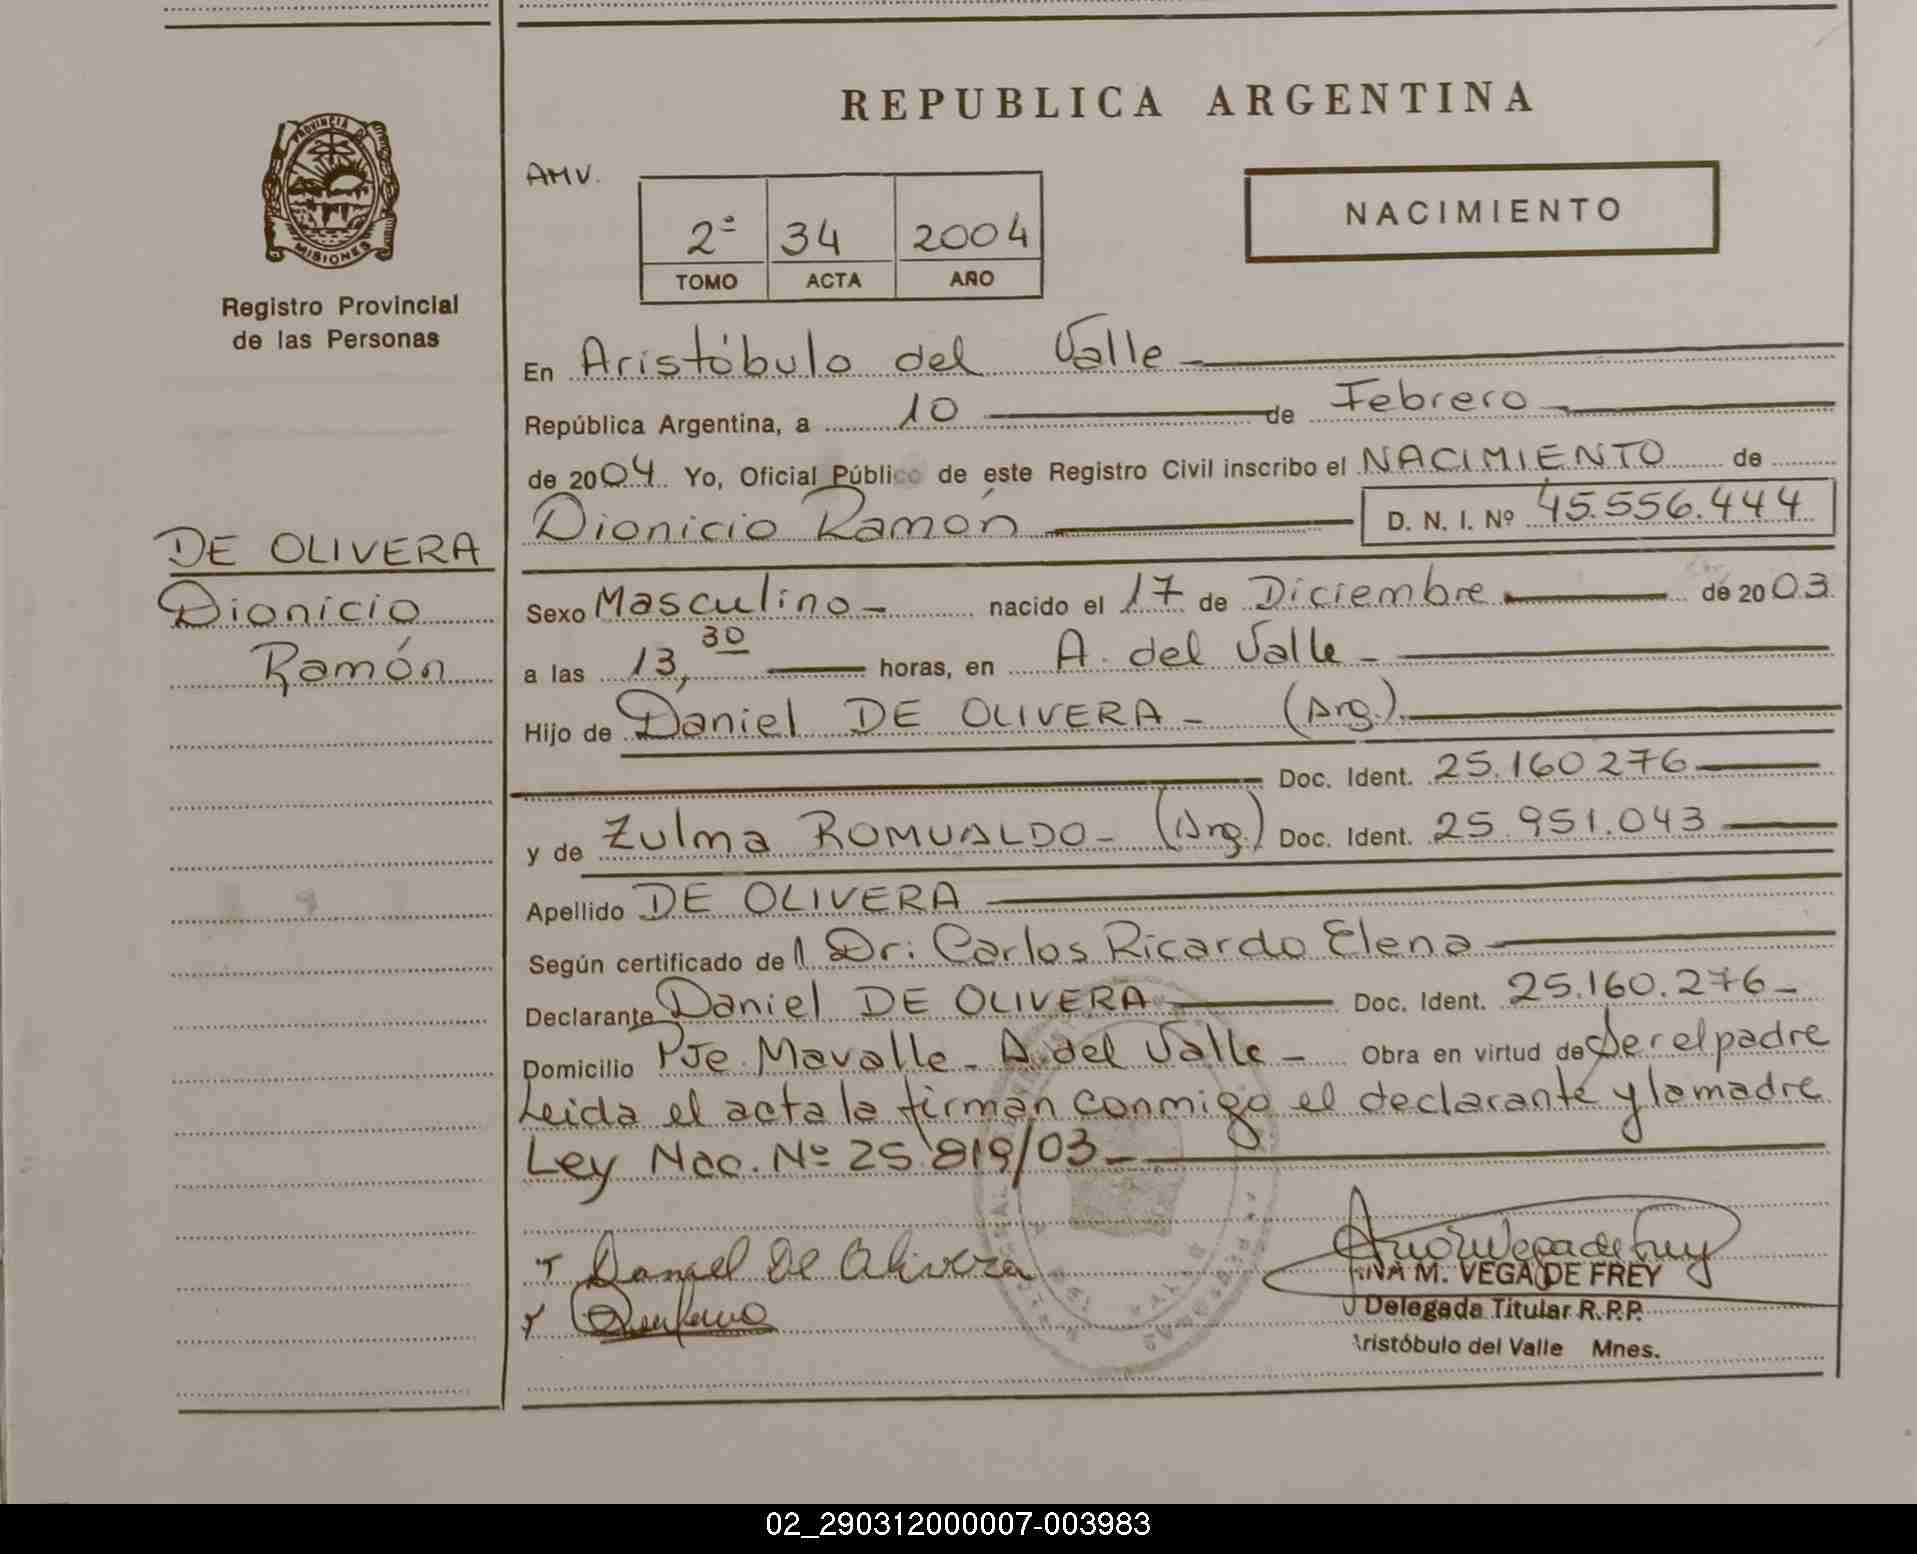 REPUBLICA ARGENTINA
PROVINCIA DE
MISIONES
Registro Provincial
de las Personas
AMV.
2º 34 2004
TOMO ACTA AÑO
NACIMIENTO
En Aristóbulo del Valle
República Argentina, a 10 de Febrero
de 2004 Yo, Oficial Público de este Registro Civil inscribo el NACIMIENTO de
Dionicio Ramón D. N. I. Nº 45.556.444
DE OLIVERA
Dionicio
Ramón
Sexo Masculino nacido el 17 de Diciembre de 2003
a las 13,30 horas, en A. del Valle
Hijo de Daniel DE OLIVERA - (Arg.)
Doc. Ident. 25.160276
y de Zulma ROMUALDO - (Arg.) Doc. Ident. 25.951.043
Apellido DE OLIVERA
Según certificado del Dr: Carlos Ricardo Elena
Declarante Daniel DE OLIVERA Doc. Ident. 25.160.276
Domicilio Pje. Mavalle - A. del Valle - Obra en virtud de Ser el padre
Leida el acta la firman conmigo el declarante y la madre
Ley Nac. Nº 25819/03
Daniel De Olivera
M. VEGA DE FREY
Delegada Titular R.P.P.
Aristóbulo del Valle Mnes.
02_290312000007-003983